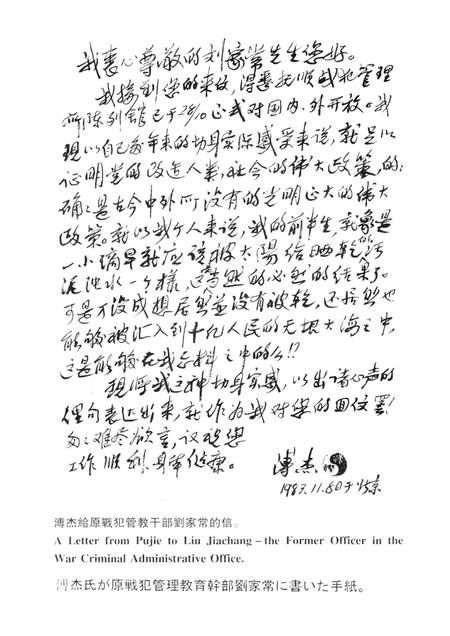 我衷心尊敬的刘家常先生您好。
我接到您的来信,得悉抚顺战犯管理
所陈列馆已于 正式对国内、外开放。我
现以自己多年来的切身实际感受来说,就足以
证明党的改造人类,社会的伟大政策,的
确是古今中外所没有的光明正大的伟大
政策。就以我个人来说,我的前半生,就象是
一小滴早就应该被太陽给晒乾的污
泥浊水一个樣,这当然的,必然的结果了。
可是,不没成想居然並没有被乾,还居然也
能够被汇入到十亿人民的无垠大海之中,
这是能够在我意料之中的么!?
现将我这种切身实感,以出诸心声的
俚句表达出来,就作为我对您的回信罢!
匆匆难尽欲言,谨祝您
工作顺利,身体健康。
溥杰
1987.11.6日于北京
溥杰給原戰犯管教干部劉家常的信。
A Letter from Pujie to Liu Jiachang – the Former Officer in the
War Criminal Administrative Office.
溥杰氏が原戦犯管理教育幹部劉家常に書いた手紙。